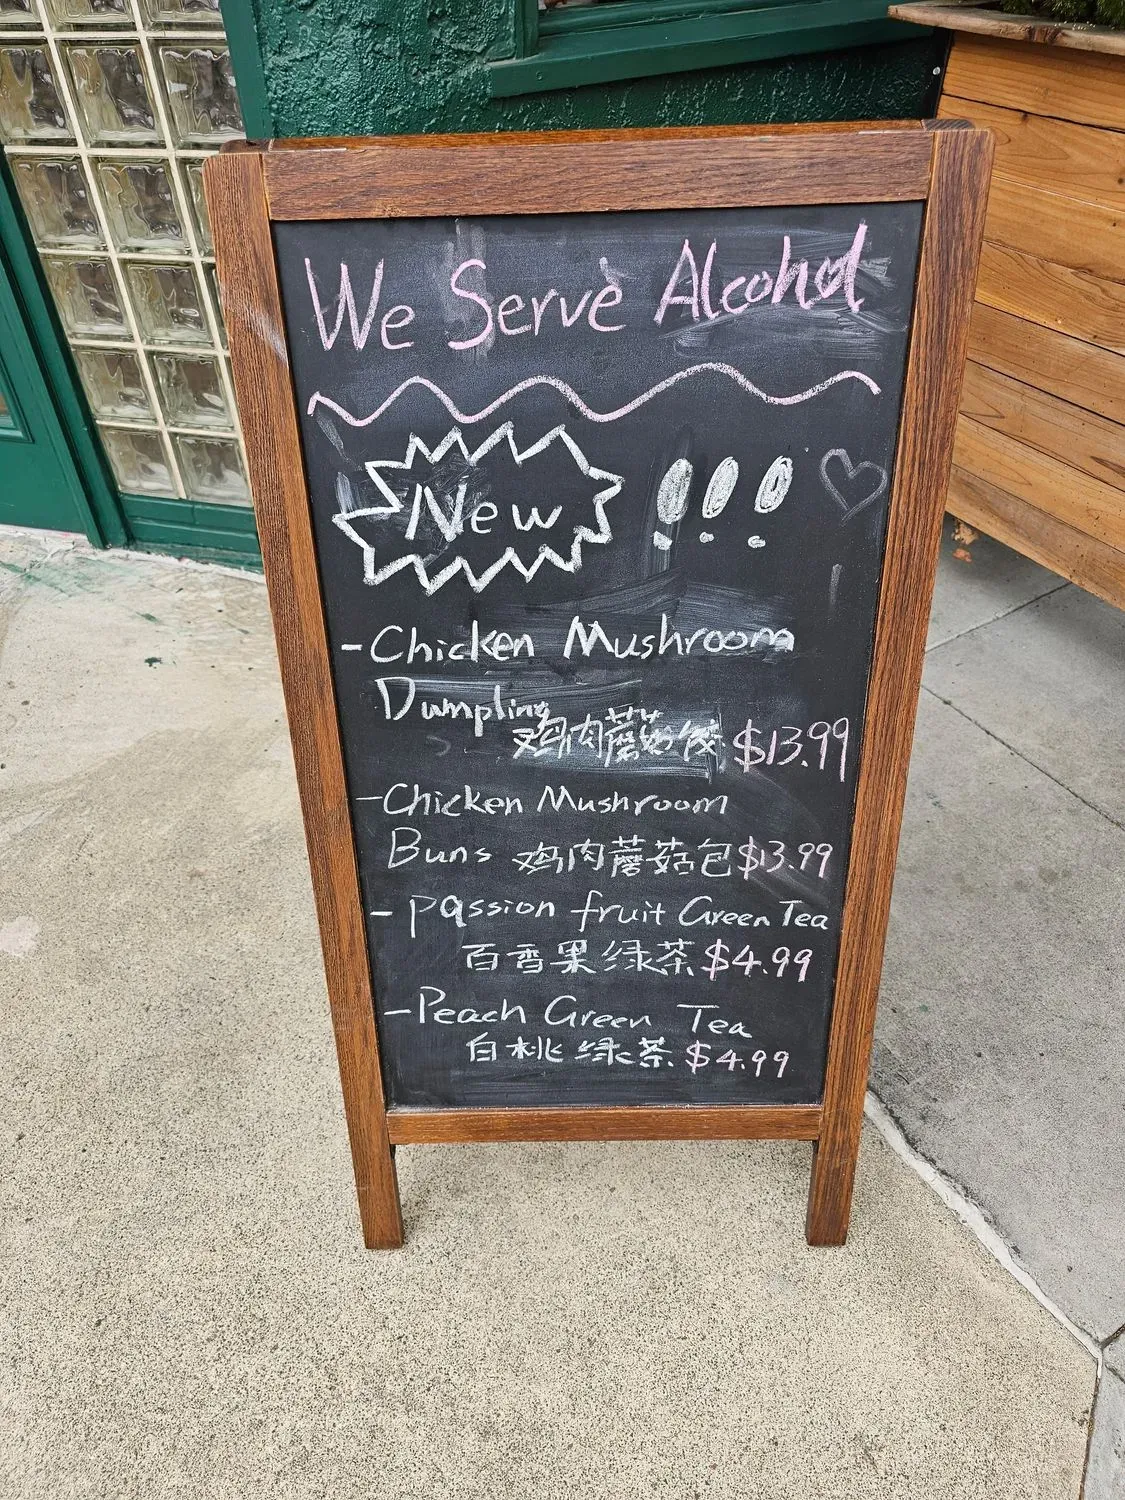 We Serve Alcohol
New !!!
- Chicken Mushroom
Dumpling
鸡肉蘑菇饺 $13.99
- Chicken Mushroom
Buns 鸡肉蘑菇包 $13.99
- Passion fruit Green Tea
百香果绿茶 $4.99
- Peach Green Tea
白桃绿茶 $4.99